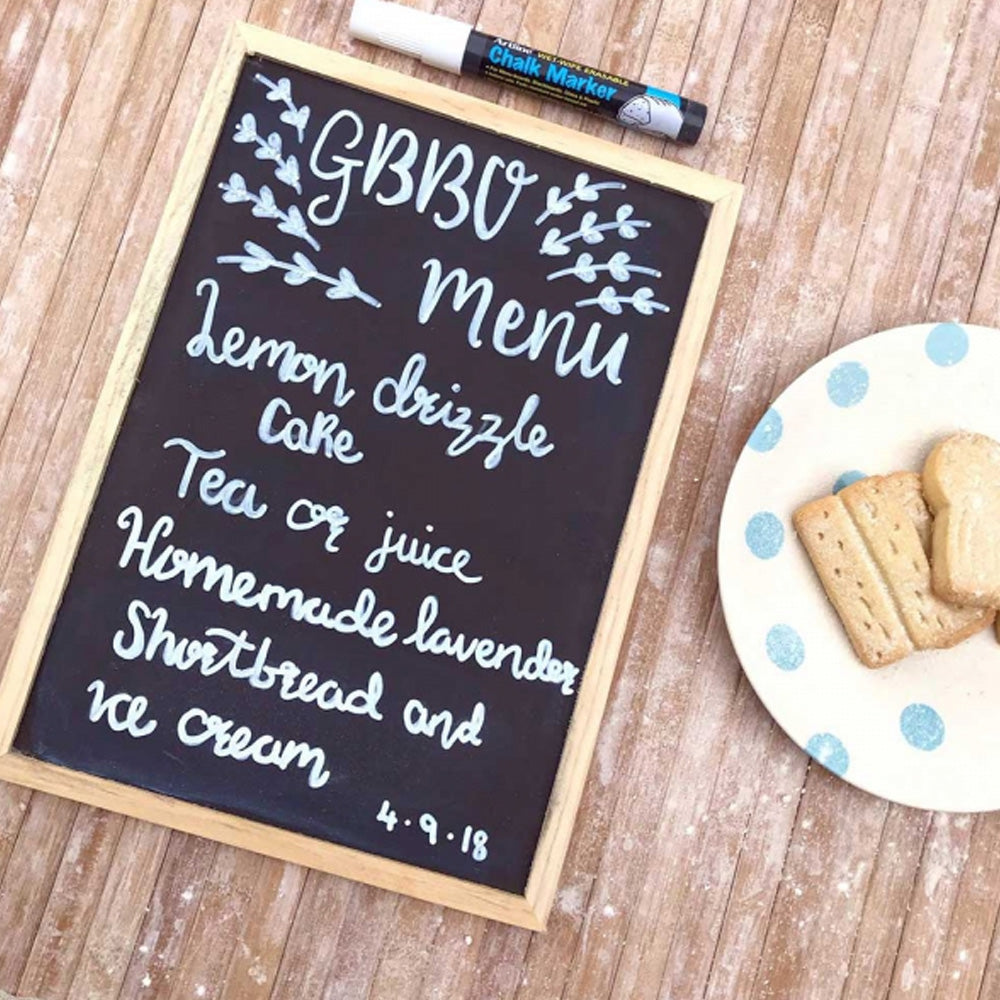 Artline WET-WIPE ERASABLE
Chalk Marker
GBBO
Menu
Lemon drizzle
Cake
Tea or juice
Homemade lavender
Shortbread and
ice cream
4.9.18